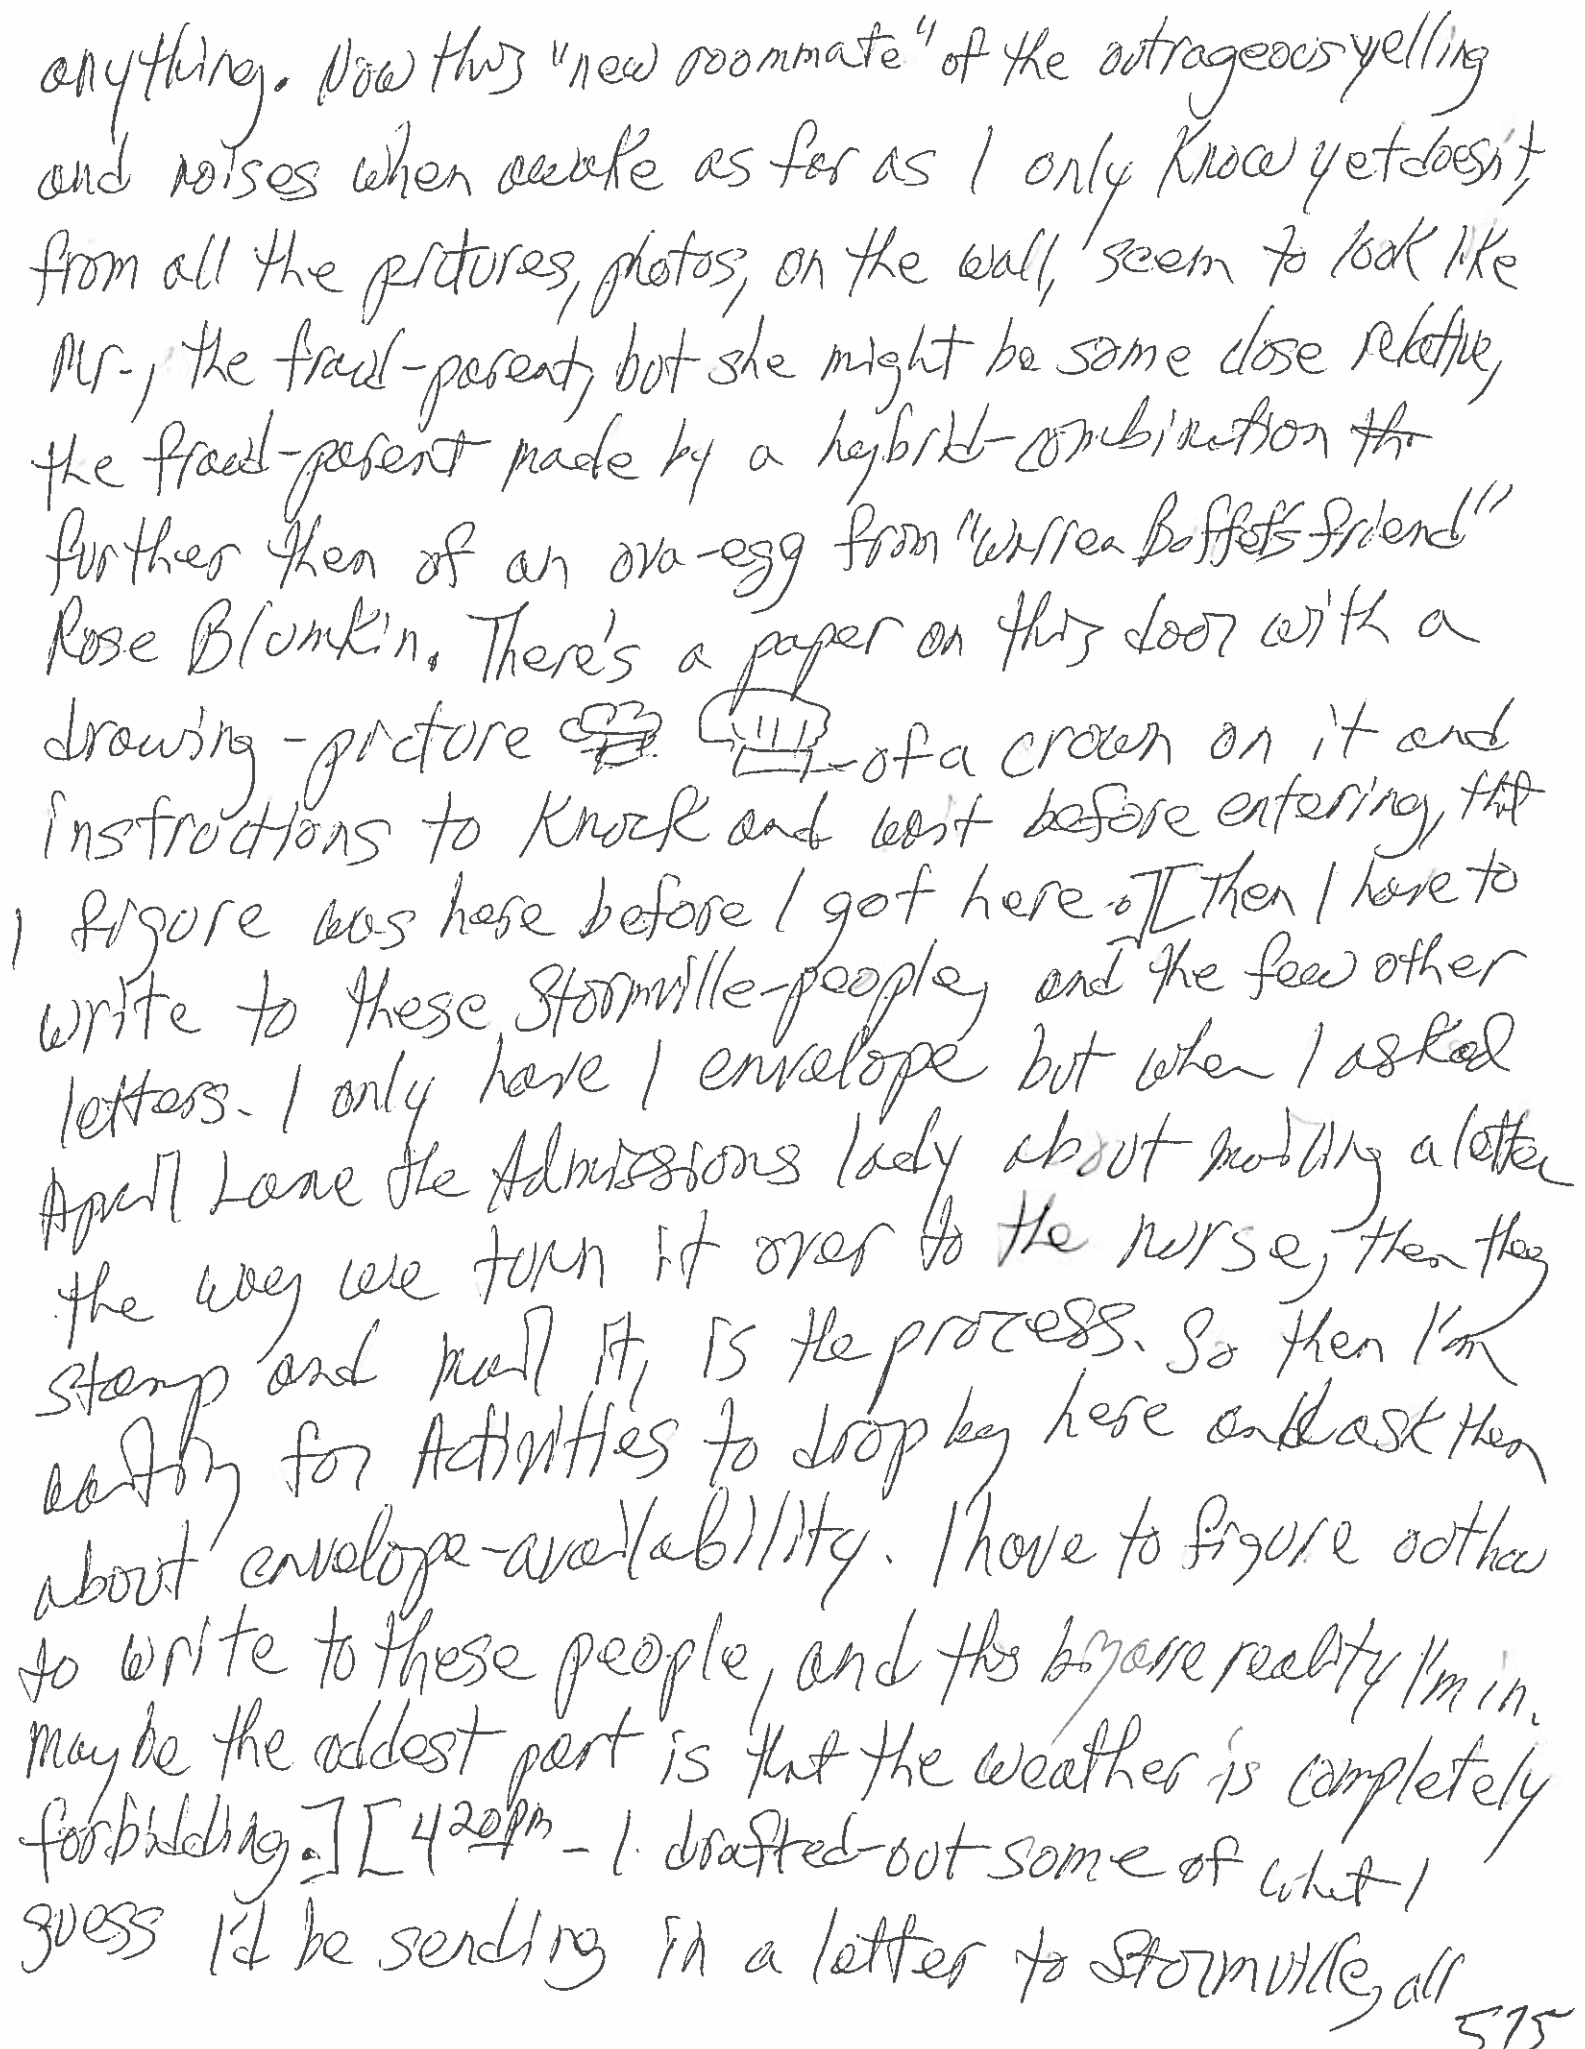 anything. Now this "new roommate" of the outrageous yelling
and noises when awake as far as I only know yet doesn't,
from all the pictures, photos, on the wall, seem to look like
Mr., the fraud-parent, but she might be some close relative,
the fraud-parent made by a hybrid-combination
further then of an ova-egg from "Warren Buffet's friend"
Rose Blumkin. There's a paper on this door with a
drawing-picture of a crown on it and
instructions to knock and wait before entering, that
I figure was here before I got here.][Then I have to
write to these Stormville-people, and the few other
letters. I only have 1 envelope but when I asked
April Lane the Admissions lady about mailing a letter
the way we turn it over to the nurse, then they
stamp and mail it, is the process. So then I'm
waiting for Activities to drop by here and ask them
about envelope-availability. I have to figure out how
to write to these people, and this bizarre reality I'm in.
Maybe the oddest part is that the weather is completely
forbidding.][4 20pm - I drafted-out some of what I
guess I'd be sending in a letter to Stormville, all
575